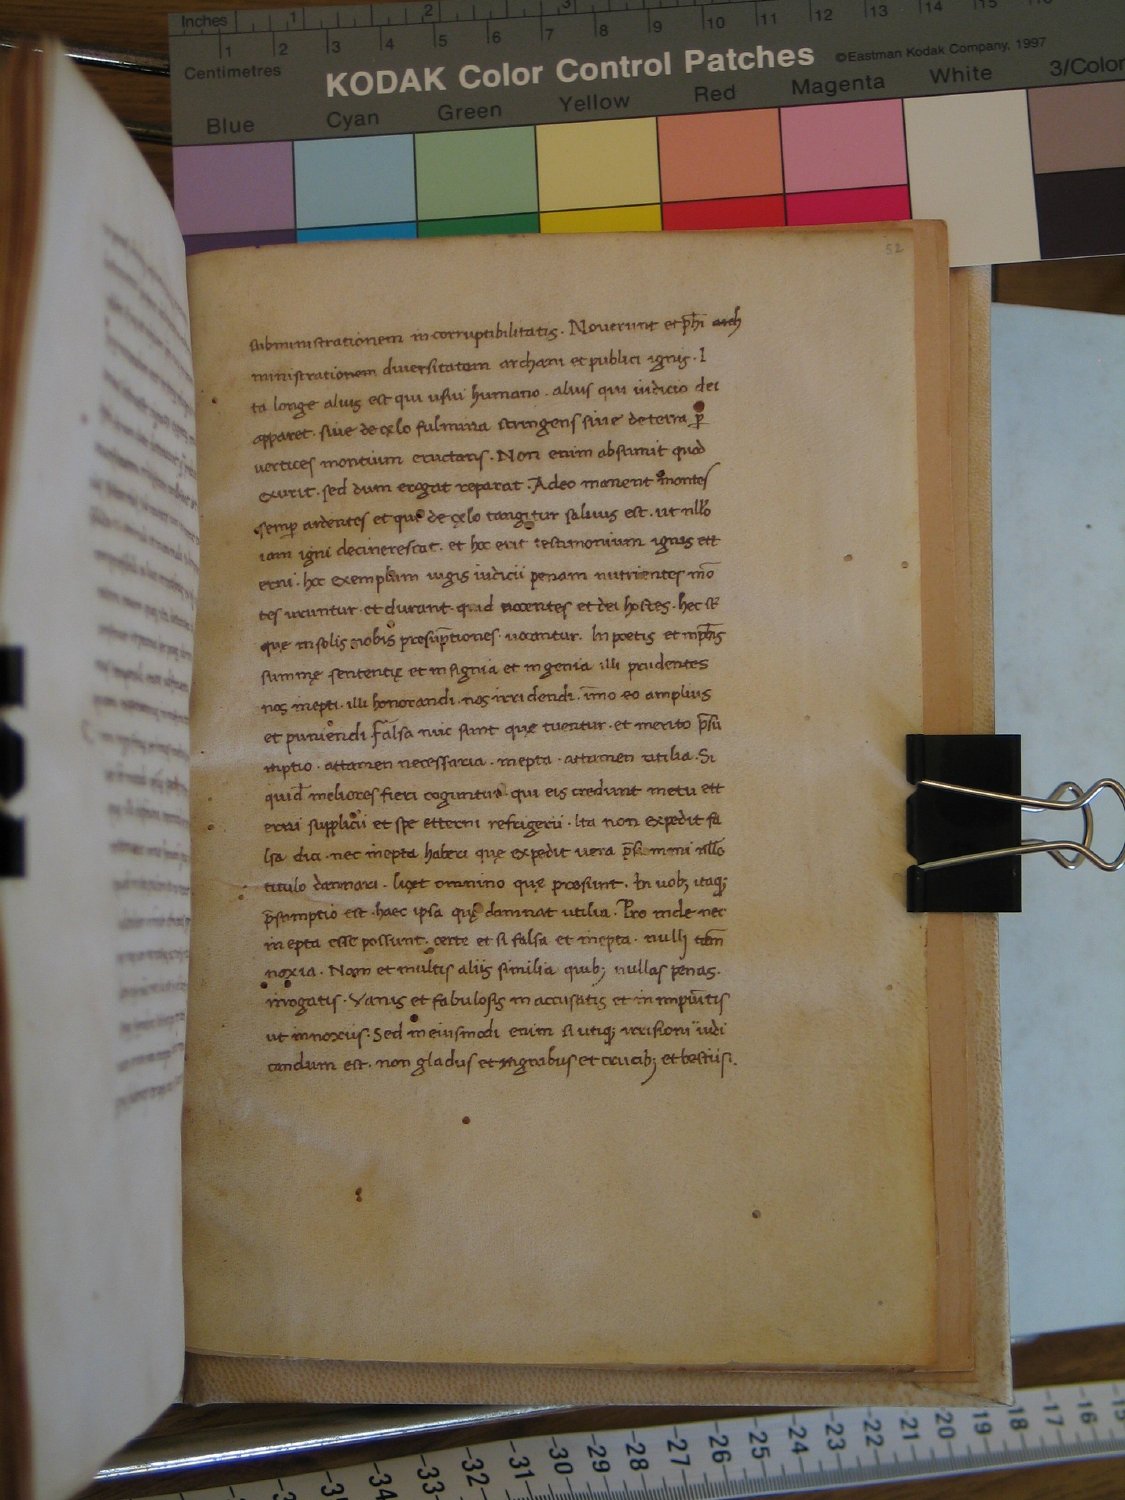 Inches 1 2 3
1 2 3 4 5 6 7 8 9 10 11 12 13 14 15 16
Centimetres
KODAK Color Control Patches ©Eastman Kodak Company, 1997
Blue Cyan Green Yellow Red Magenta White 3/Color
52
subministrationem incorruptibilitatis. Noverunt et ph̄i arch
ministrationem diversitatem archani et publici ignis. I
ta longe alius est qui usui humano. alius qui iudicio dei
apparet. sive de cęlo fulmina stringens sive de terra p̄
vertices montium eructans. Non enim absumit quod
exurit. sed dum erogat reparat. Adeo manent montes
semp ardentes et qui de cęlo tangitur salvus est. ut nłło
iam igni decinerescat. et hoc erit testimonium ignis ett
erni. hoc exemplum iugis iudicii penam nutrientes mō
tes uruntur. et durant. quid nocentes et dei hostes. hec st̄
quę in solis nobis presūptiones vocantur. In poetis et in ph̄is
summę sententię et insignia et ingenia illi prudentes
nos inepti. illi honorandi. nos irridendi. immo eo amplius
et puniendi falsa nūc sunt quę tuentur. et merito p̄su
mptio. attamen necessaria. inepta. attamen utilia. Si
quid meliores fieri coguntur qui eis credunt metu ett
erni supplicii et spe etterni refrigerii. Ita non expedit fa
lsa dici. nec inepta haberi quę expedit vera p̄sumi nłło
titulo damnari. licet omnino quę prosunt. In vob; itaq;
p̄sumptio est. haec ipsa quę damnat utilia. Pro inde nec
inepta esse possunt. certe et si falsa et inepta. nulli tam̄
noxia. Nam et multis aliis similia quib; nullas penas.
irrogatis. Vanis et fabulosis in accusatis et in impunitis
ut innoxiis. Sed in eiusmodi enim si utiq; irrisioni iudi
candum est. non gladiis et ignibus et crucib; et bestiis.
-35 -34 -33 -32 -31 -30 -29 -28 -27 -26 -25 -24 -23 -22 -21 -20 -19 -18 -17 -16 -15